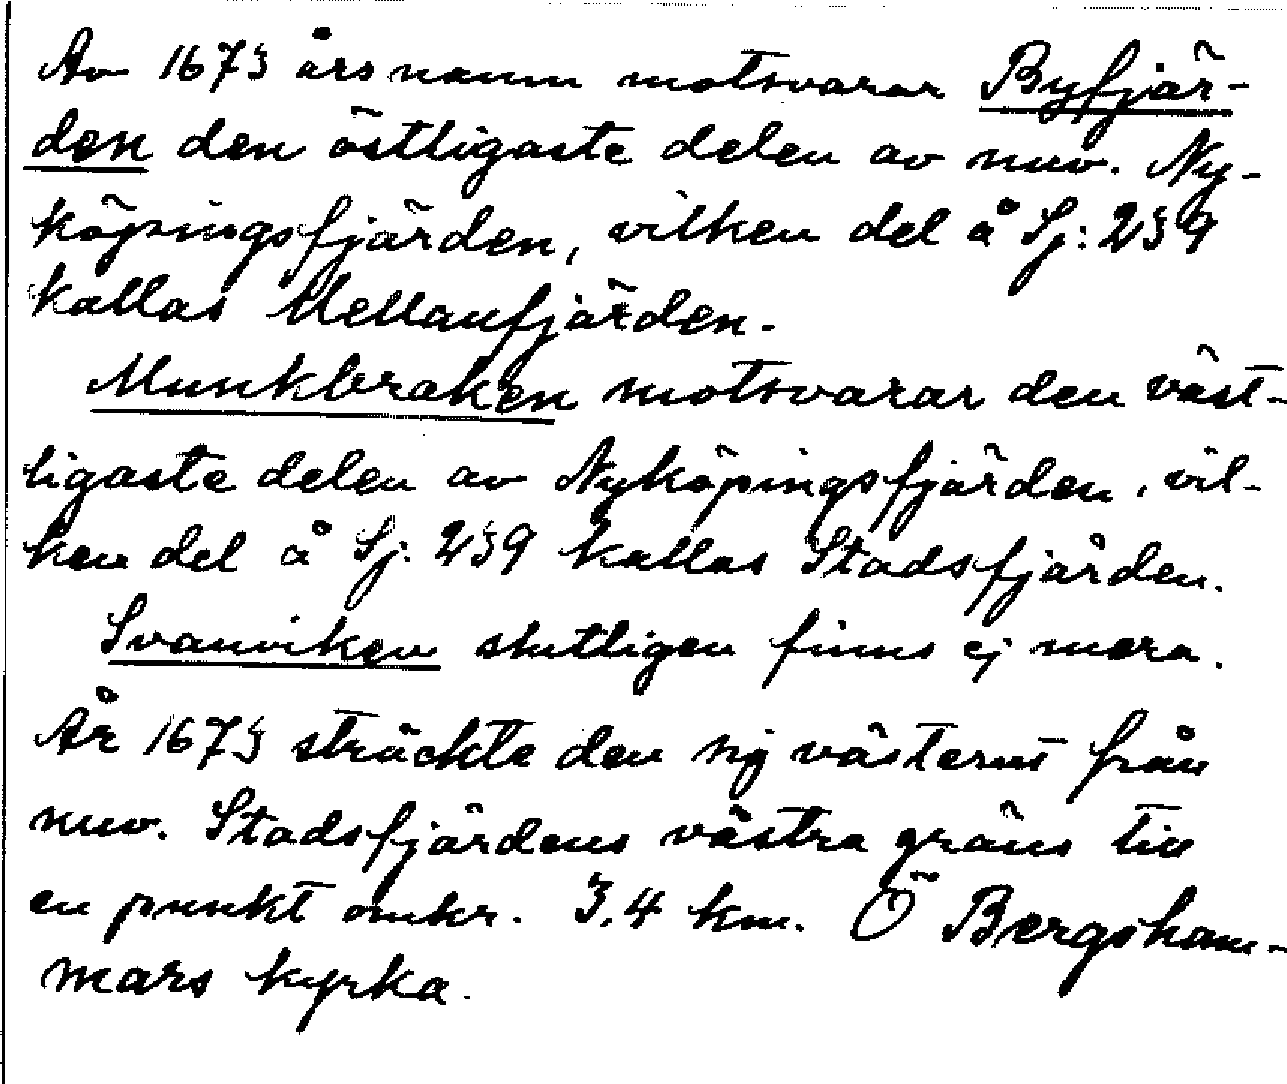 Av 1673 års namn motsvarar Byfjär-
den den östligaste delen av nuv. Ny-
köpingsfjärden, vilken del å Sj: 239
kallas Mellanfjärden.
Munkbraken motsvarar den väst-
ligaste delen av Nyköpingsfjärden, vil-
ken del å Sj. 239 kallas Stadsfjärden.
Svanviken slutligen finns ej mera.
År 1673 sträckte den sig västerut från
nuv. Stadsfjärdens västra gräns till
en punkt omkr. 3,4 km. Ö Bergsham-
mars kyrka.